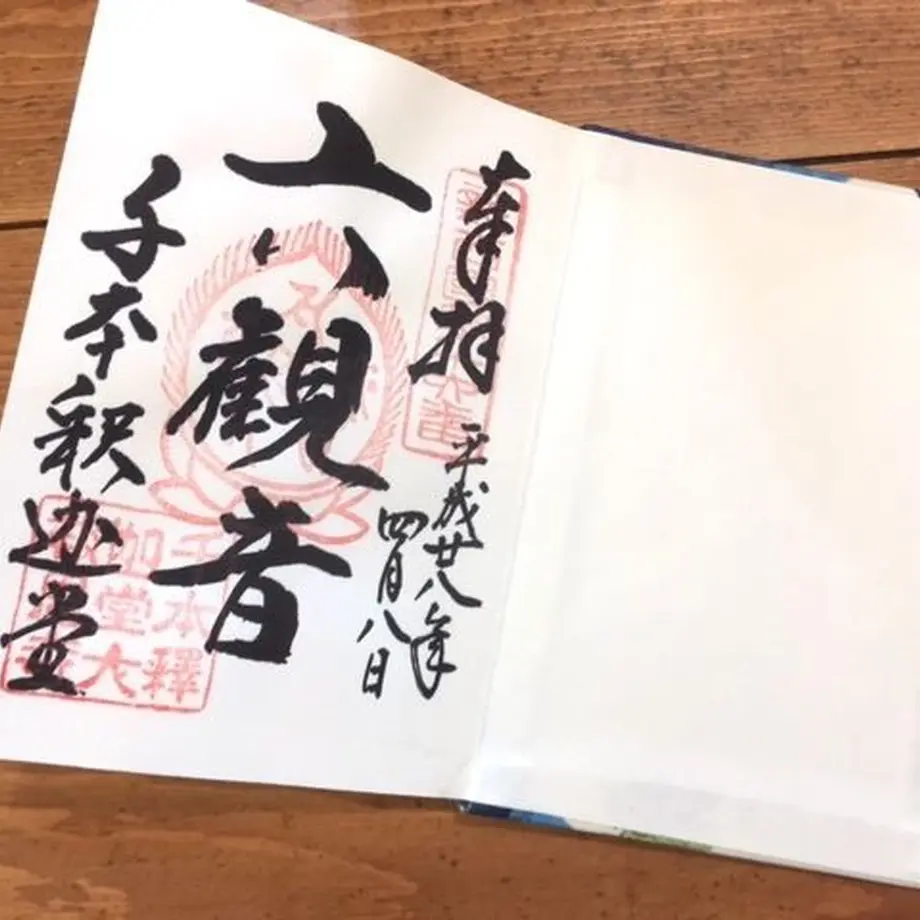 奉拝
平成廿八年
四月八日
六観音
千本釈迦堂
千本釋
迦堂大